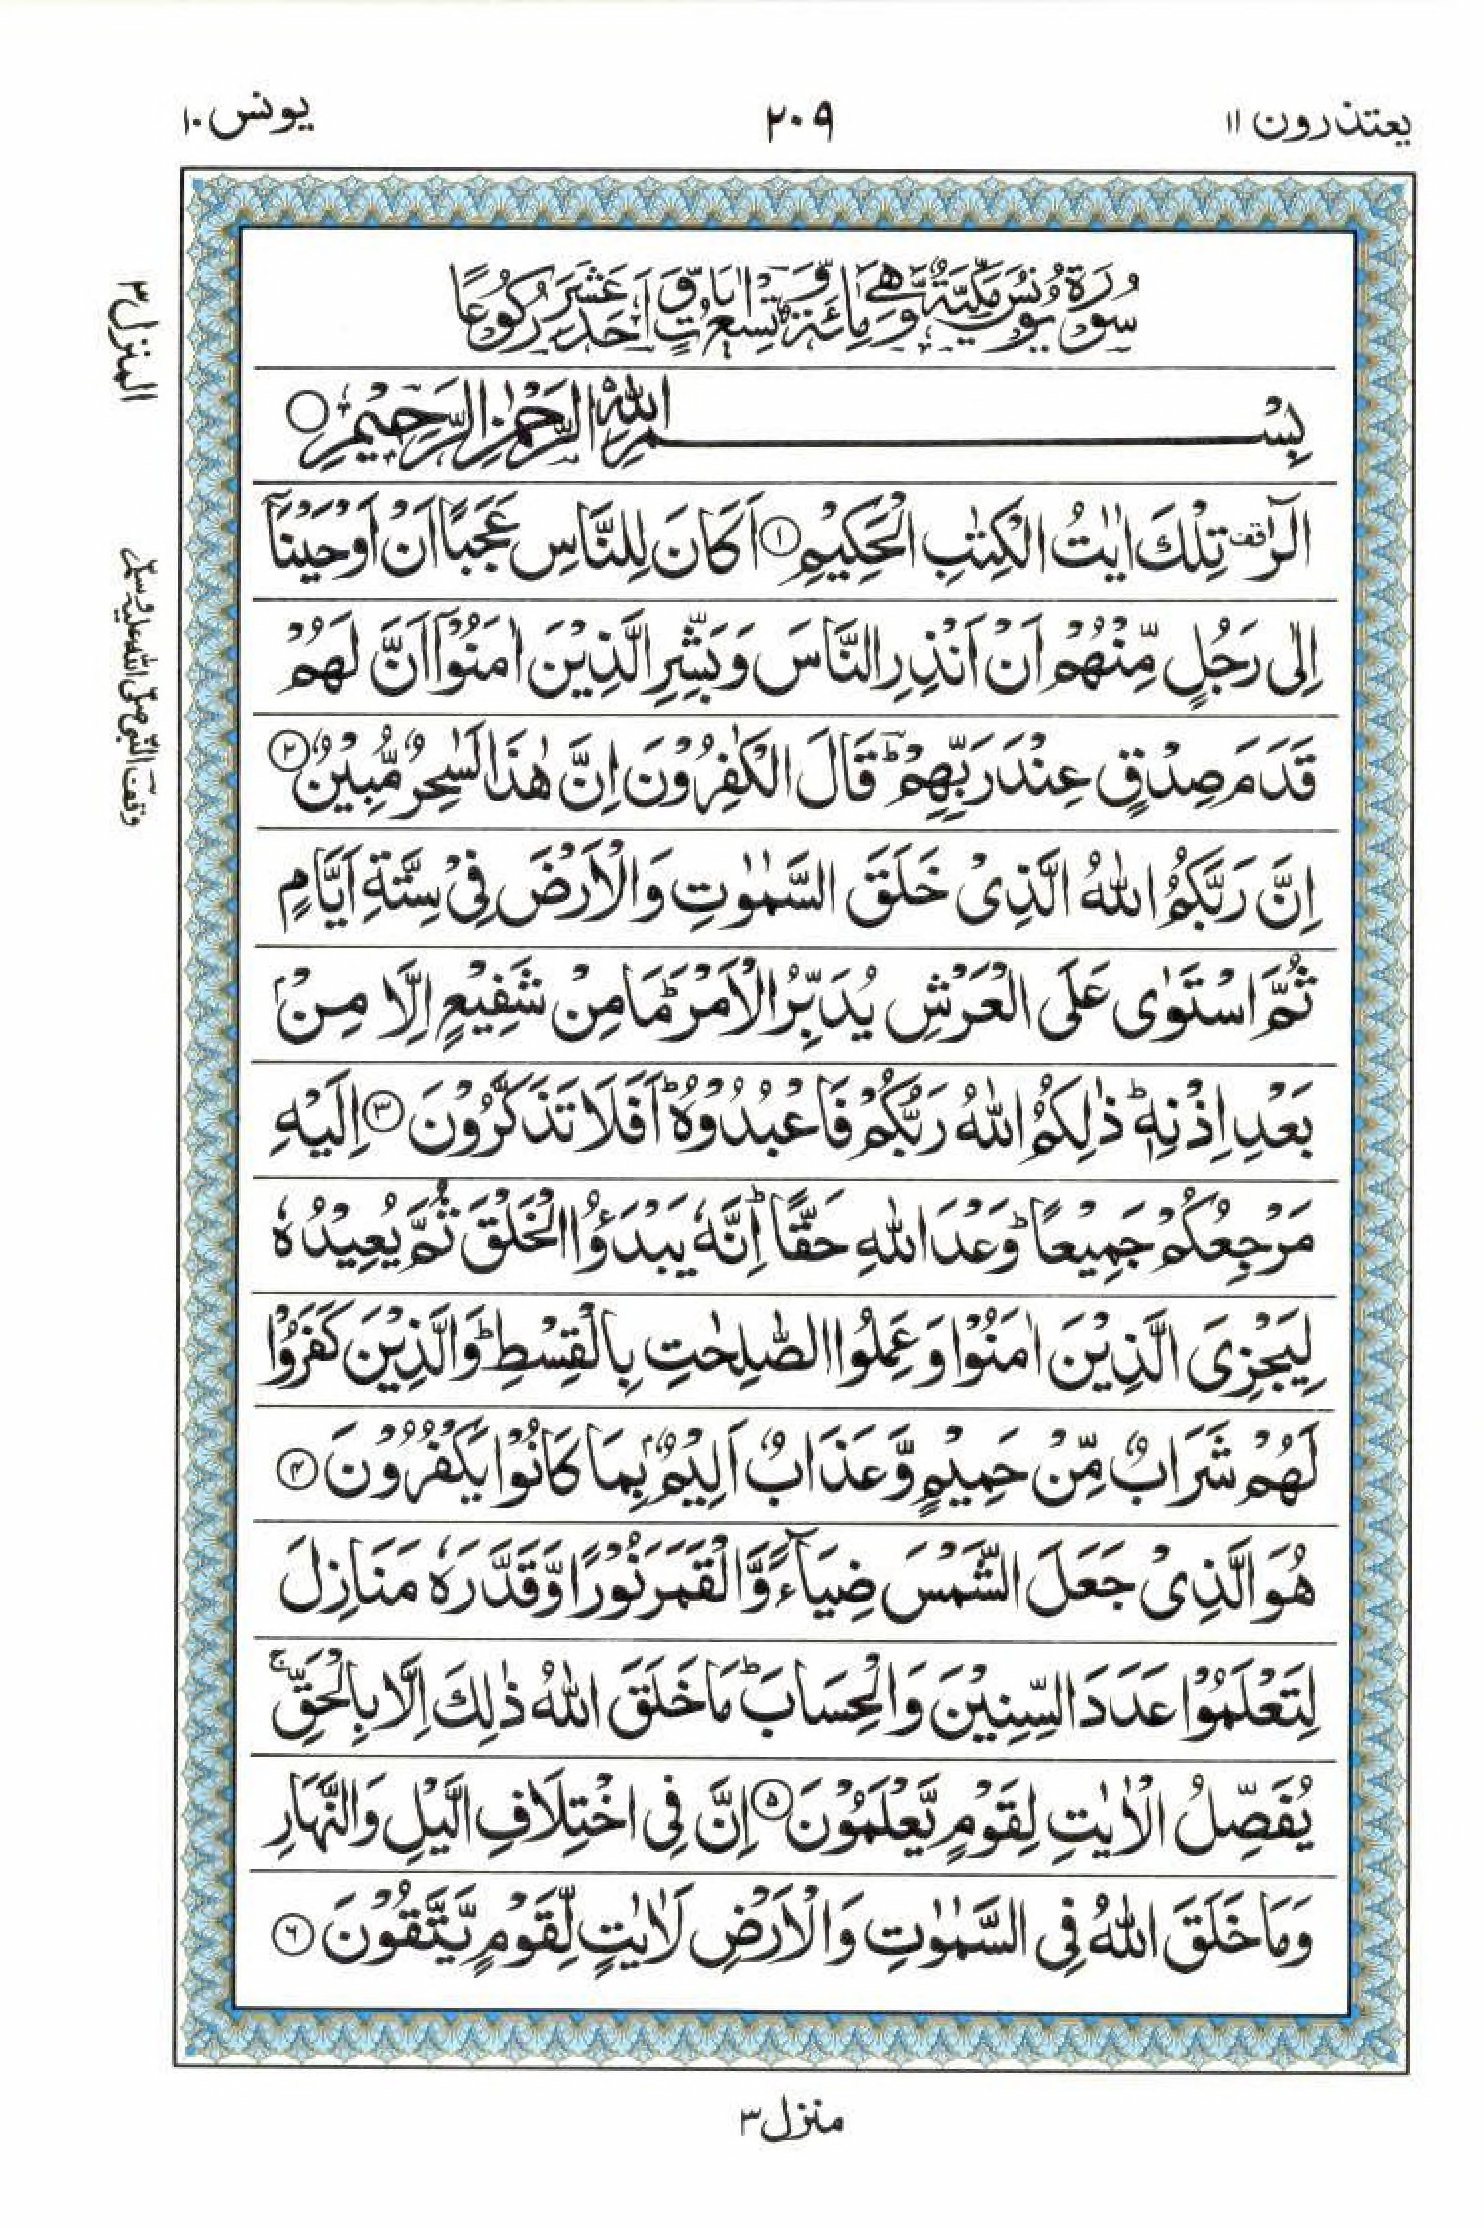 یعتذرون ۱۱
۲۰۹
یونس ۱۰
سُوْرَةُ يُوْنُسَ مَكِّيَّةٌ وَّهِيَ مِائَةٌ وَّتِسْعُ اٰيَاتٍ وَّاَحَدَ عَشَرَ رُكُوْعًا
بِسْمِ اللّٰهِ الرَّحْمٰنِ الرَّحِيْمِ ○
الٓرٰ ࣞقف تِلْكَ اٰيٰتُ الْكِتٰبِ الْحَكِيْمِ ① اَكَانَ لِلنَّاسِ عَجَبًا اَنْ اَوْحَيْنَاۤ
اِلٰى رَجُلٍ مِّنْهُمْ اَنْ اَنْذِرِ النَّاسَ وَبَشِّرِ الَّذِيْنَ اٰمَنُوْۤا اَنَّ لَهُمْ
قَدَمَ صِدْقٍ عِنْدَ رَبِّهِمْ ؕ قَالَ الْكٰفِرُوْنَ اِنَّ هٰذَا لَسٰحِرٌ مُّبِيْنٌ ②
اِنَّ رَبَّكُمُ اللّٰهُ الَّذِىْ خَلَقَ السَّمٰوٰتِ وَالْاَرْضَ فِىْ سِتَّةِ اَيَّامٍ
ثُمَّ اسْتَوٰى عَلَى الْعَرْشِ يُدَبِّرُ الْاَمْرَ ؕ مَا مِنْ شَفِيْعٍ اِلَّا مِنْۢ
بَعْدِ اِذْنِهٖ ؕ ذٰلِكُمُ اللّٰهُ رَبُّكُمْ فَاعْبُدُوْهُ ؕ اَفَلَا تَذَكَّرُوْنَ ③ اِلَيْهِ
مَرْجِعُكُمْ جَمِيْعًا ؕ وَعْدَ اللّٰهِ حَقًّا ؕ اِنَّهٗ يَبْدَؤُا الْخَلْقَ ثُمَّ يُعِيْدُهٗ
لِيَجْزِىَ الَّذِيْنَ اٰمَنُوْا وَعَمِلُوا الصّٰلِحٰتِ بِالْقِسْطِ ؕ وَالَّذِيْنَ كَفَرُوْا
لَهُمْ شَرَابٌ مِّنْ حَمِيْمٍ وَّعَذَابٌ اَلِيْمٌۢ بِمَا كَانُوْا يَكْفُرُوْنَ ④
هُوَ الَّذِىْ جَعَلَ الشَّمْسَ ضِيَآءً وَّالْقَمَرَ نُوْرًا وَّقَدَّرَهٗ مَنَازِلَ
لِتَعْلَمُوْا عَدَدَ السِّنِيْنَ وَالْحِسَابَ ؕ مَا خَلَقَ اللّٰهُ ذٰلِكَ اِلَّا بِالْحَقِّ ۚ
يُفَصِّلُ الْاٰيٰتِ لِقَوْمٍ يَّعْلَمُوْنَ ⑤ اِنَّ فِى اخْتِلَافِ الَّيْلِ وَالنَّهَارِ
وَمَا خَلَقَ اللّٰهُ فِى السَّمٰوٰتِ وَالْاَرْضِ لَاٰيٰتٍ لِّقَوْمٍ يَّتَّقُوْنَ ⑥
المنزل ۳
وقف النبی صلی اللہ علیہ وسلم
منزل ۳